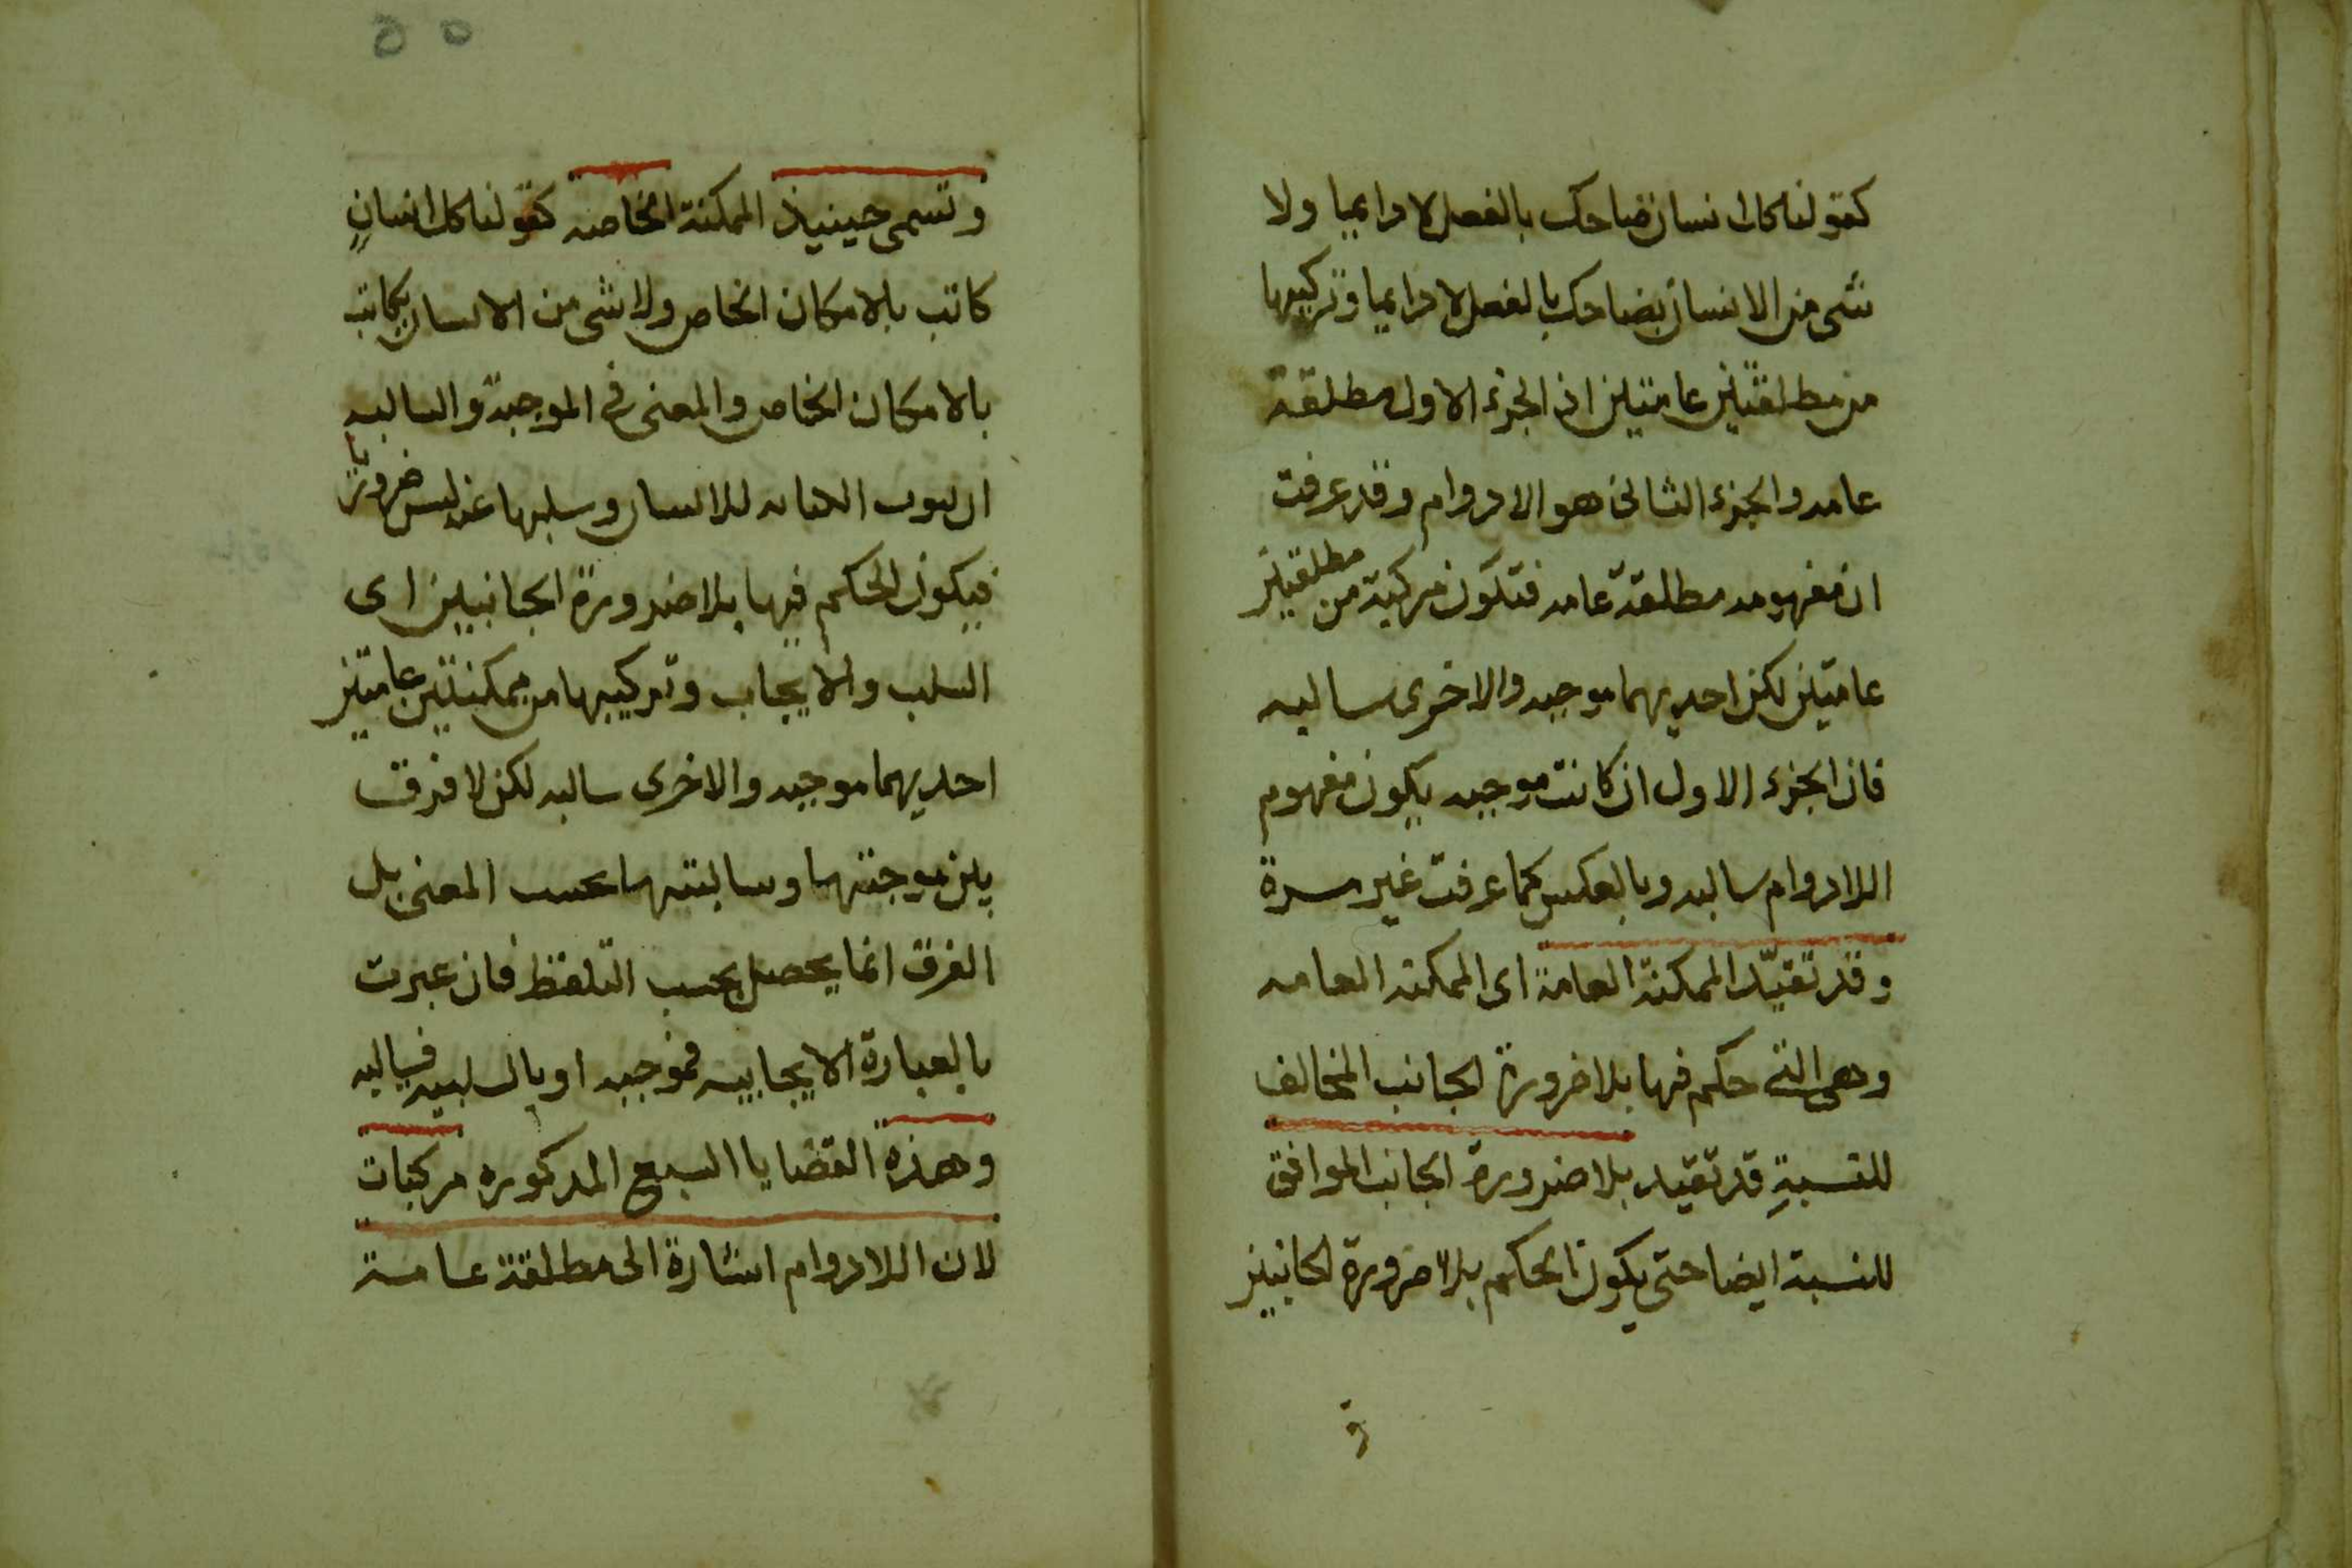 كقولنا كل انسان ضاحك بالفعل لا دايما ولا
شى من الانسان بضاحك بالفعل لا دايما وتركيبها
من مطلقتين عامتين اذ الجزء الاول مطلقة
عامه والجزء الثانى هو اللادوام وقد عرفت
ان مفهومه مطلقة عامه فتكون مركبة من مطلقتين
عامتين لكن احديهما موجبه والاخرى سالبه
فان الجزء الاول ان كانت موجبه يكون مفهوم
اللادوام سالبه وبالعكس كما عرفت غير مرة
وقد تقيّد الممكنة العامة اى الممكنه العامه
وهى التى حكم فيها بلا ضرورة الجانب المخالف
للنسبةِ قد تقيد بلا ضرورة الجانب الموافق
للنسبة ايضا حتى يكون الحكم بلا ضرورة الجانبين
و
٥٥
وتسمى حينيذ الممكنة الخاصه كقولنا كل انسانٍ
كاتب بالامكان الخاص ولا شى من الانسان بكاتب
بالامكان الخاص والمعنى فى الموجبة والسالبه
ان ثبوت الكتابه للانسان وسلبها عنه ليس ضروريا
فيكون الحكم فيها بلا ضرورة الجانبين اى
السلب والايجاب وتركيبها من ممكنتين عامتين
احديهما موجبه والاخرى سالبه لكن لا فرق
بين موجبتها وسالبتها بحسب المعنى بل
الفرق انما يحصل بحسب التلفظ فان عبرت
بالعبارة الايجابيه فموجبه او بالسلبيه فسالبه
وهذه القضايا السبع المذكوره مركبات
لان اللادوام اشارة الى مطلقة عامة